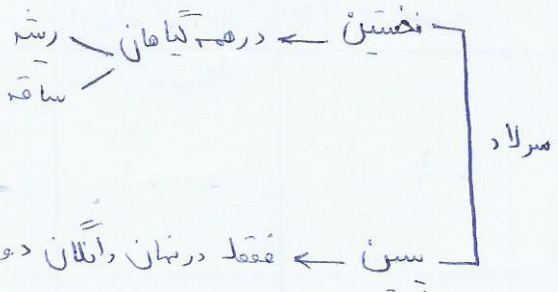 نخستین ← در همه گیاهان ریشه
ساقه
مرلاد
پسین ← فقط در نهان دانگان دو